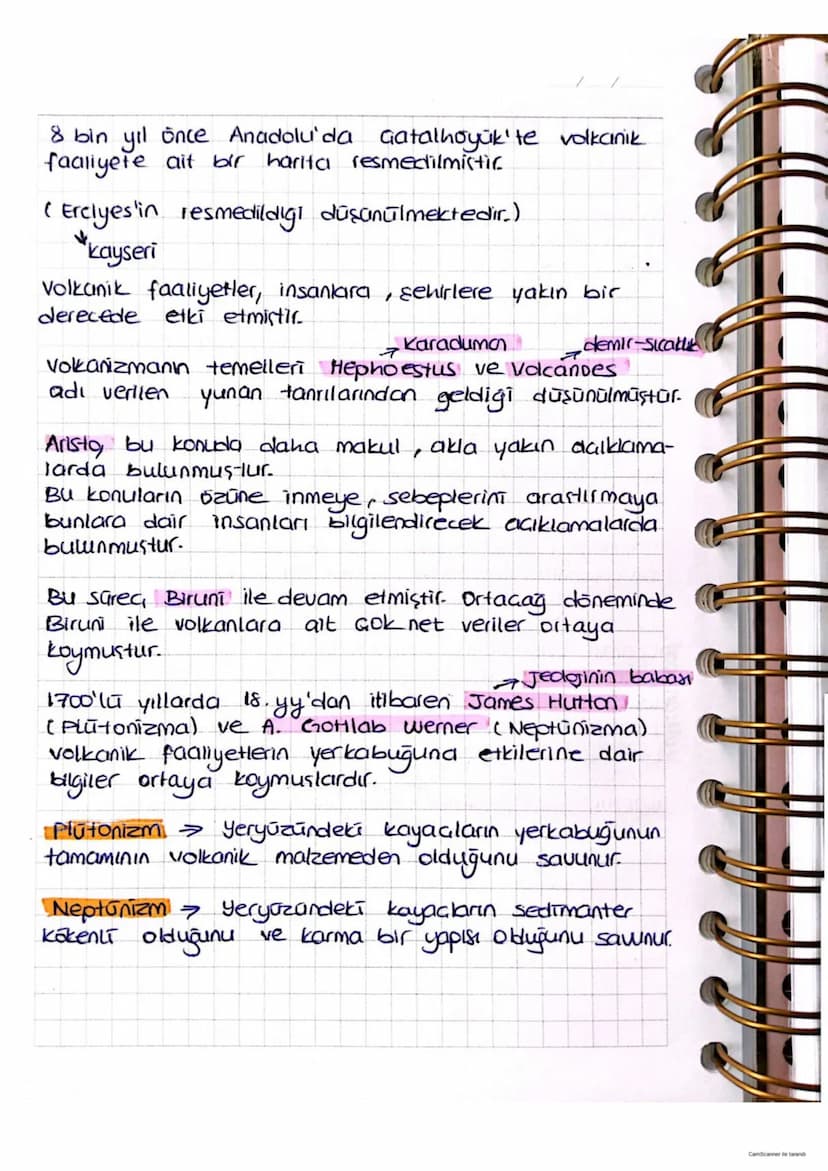 / /
8 bin yıl önce Anadolu'da Çatalhöyük'te volkanik
faaliyete ait bir harita resmedilmiştir.
( Erciyes'in resmedildiği düşünülmektedir.)
kayseri
Volkanik faaliyetler, insanlara , şehirlere yakın bir
derecede etki etmiştir.
→ Karaduman → demir-sıcaklık
Volkanizmanın temelleri Hephoestus ve Volcanoes
adı verilen yunan tanrılarından geldiği düşünülmüştür.
Aristo, bu konuda daha makul , akla yakın açıklama-
larda bulunmuştur.
Bu konuların özüne inmeye, sebeplerini araştırmaya
bunlara dair insanları bilgilendirecek açıklamalarda
bulunmuştur.
Bu süreç, Biruni ile devam etmiştir. Ortaçağ döneminde
Biruni ile volkanlara ait çok net veriler ortaya
koymuştur.
→ Jeolojinin babası
1700'lü yıllarda 18. yy'dan itibaren James Hutton
(Plütonizma) ve A. Gottlab Werner (Neptünizma)
volkanik faaliyetlerin yerkabuğuna etkilerine dair
bilgiler ortaya koymuşlardır.
Plütonizm → Yeryüzündeki kayaçların yerkabuğunun
tamamının volkanik malzemeden olduğunu savunur.
Neptünizm → Yeryüzündeki kayaçların sedimanter
kökenli olduğunu ve karma bir yapısı olduğunu savunur.
CamScanner ile tarandı